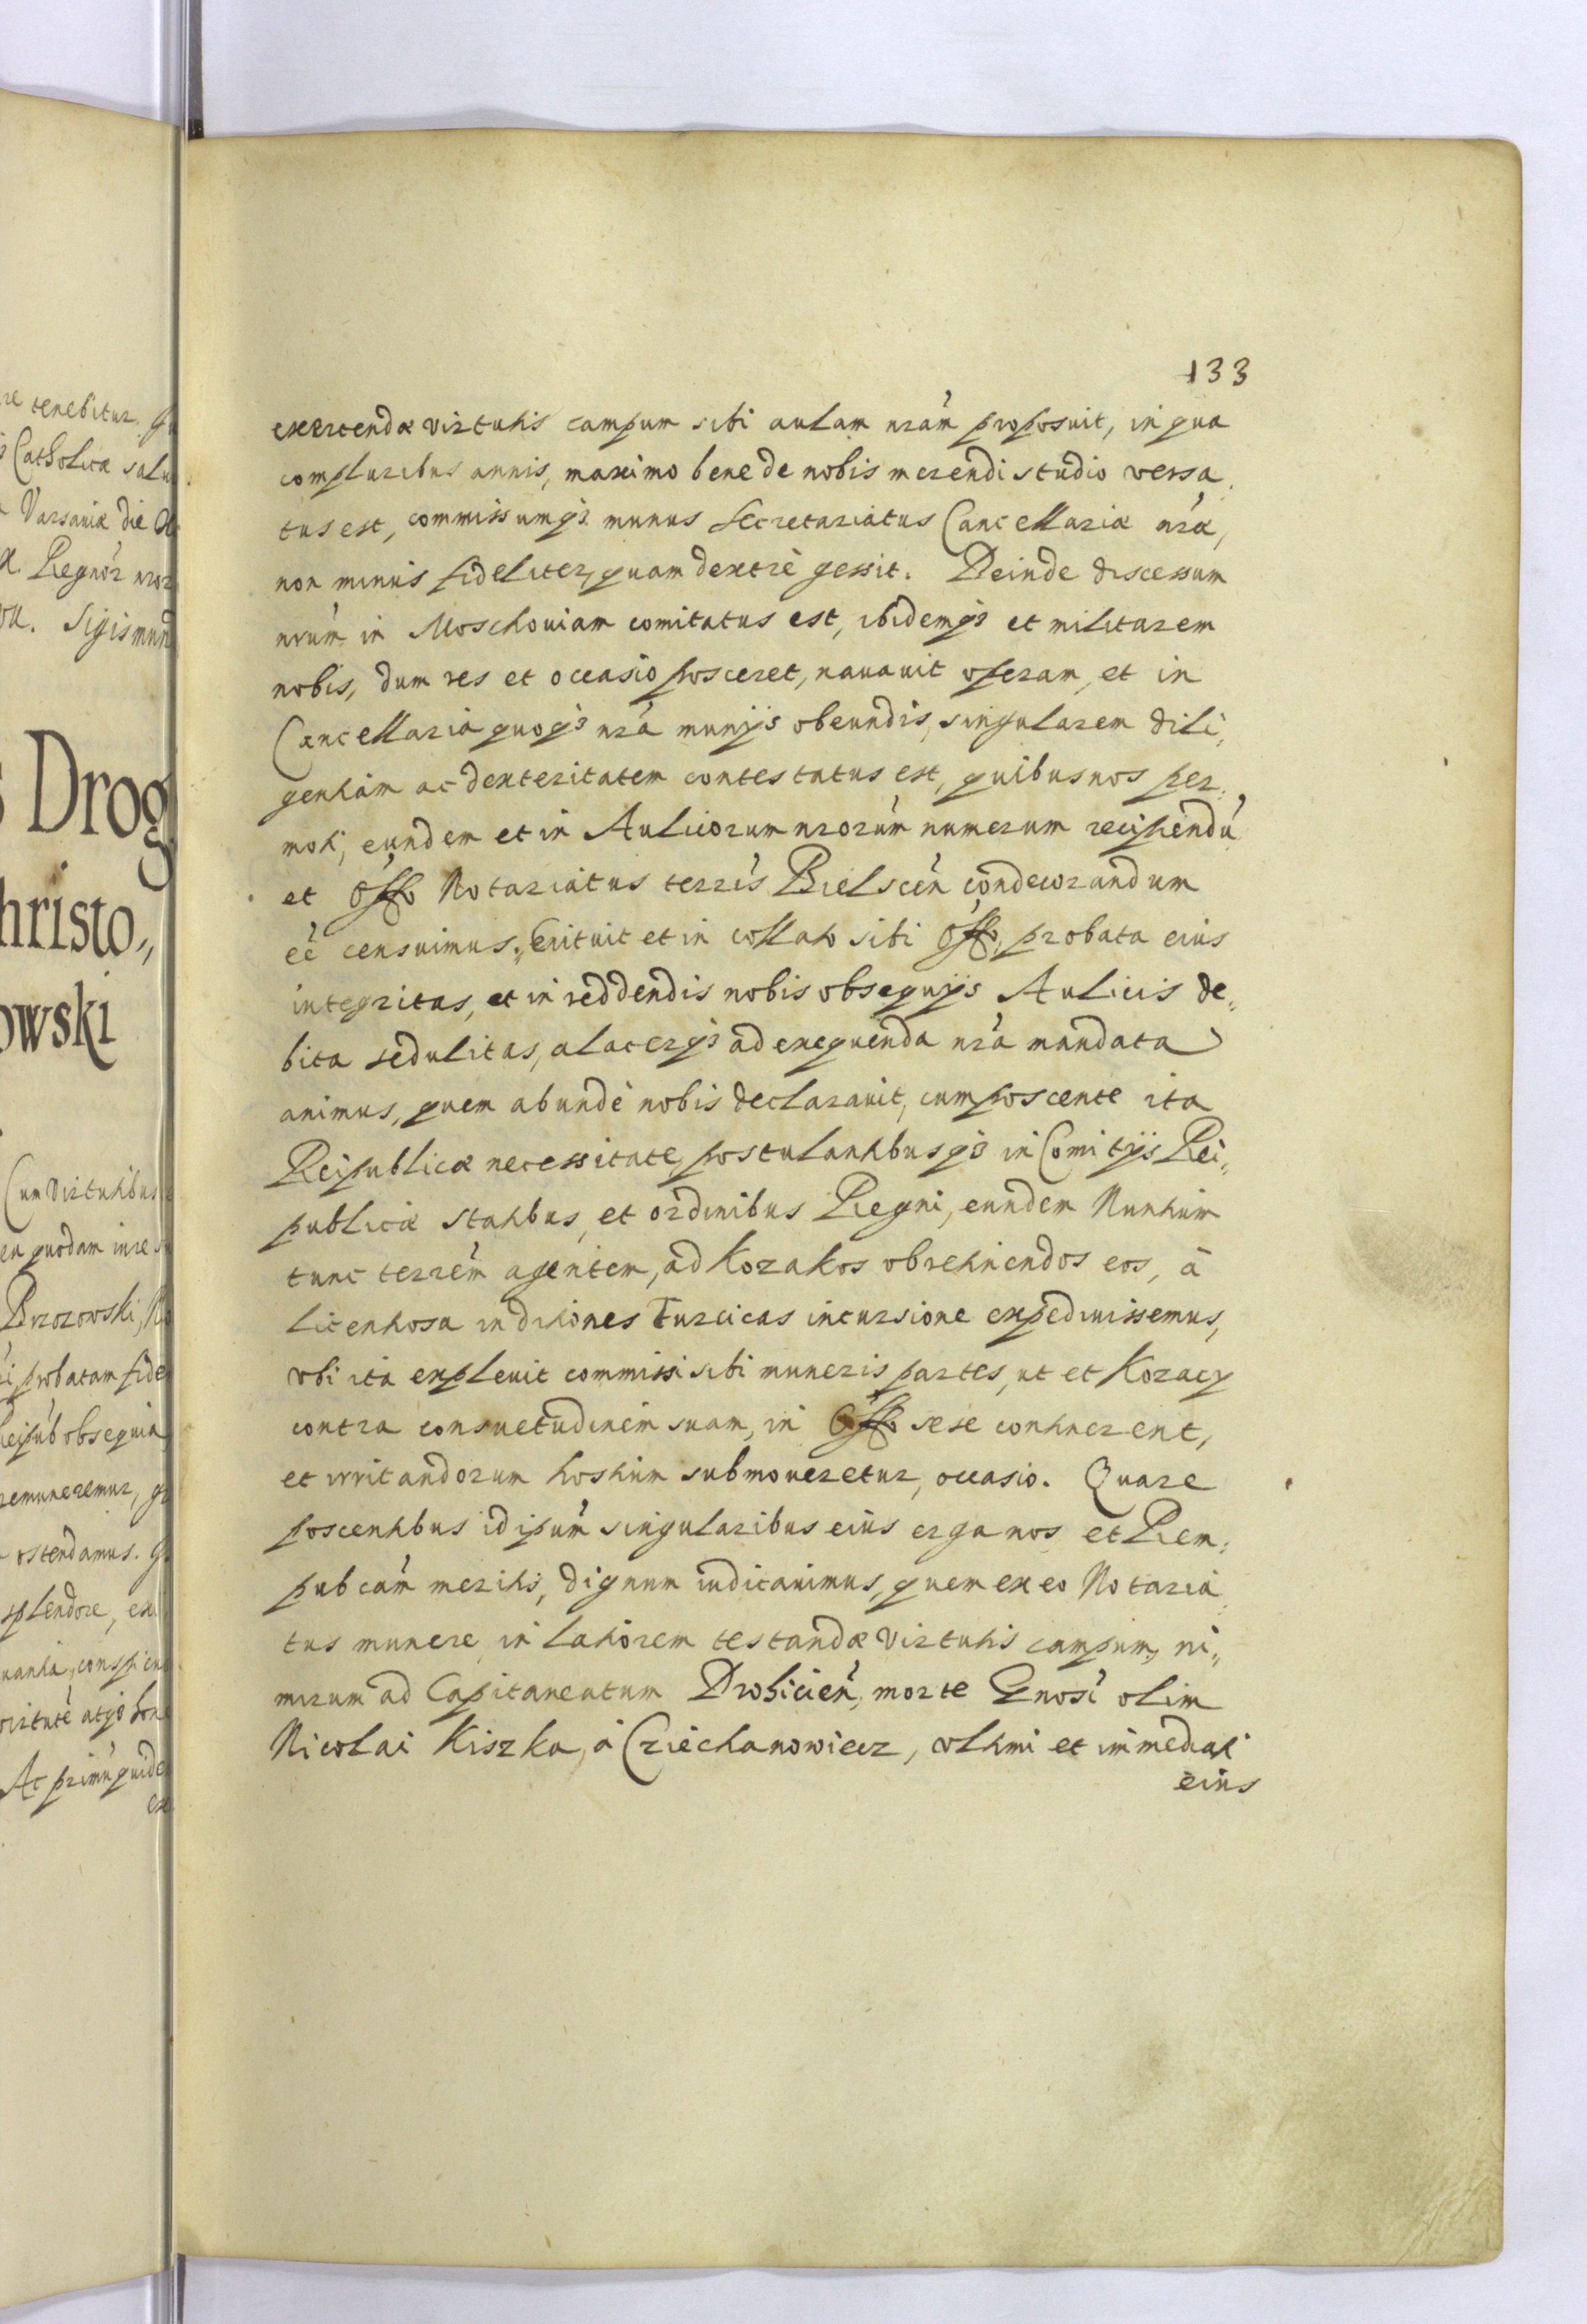 re tenebitur.
Catholicæ salu
Varsaviæ die
Regnor̃ nror
Sigismund
Drog
hristo,,
owski
Cum Virtutibus
quodam iure
Brzozowski,
probatam fide
Reipub̃ obsequia
remuneremur,
ostendamus.
splendore,
conspicu
virtute atq3 hon
At primũ quide
133
exercendæ virtutis campum sibi aulam nrãm proposuit, in qua
compluribus annis, maximo bene de nobis merendi studio versa,
tus est, commissumq3 munus Secretariatus Cancellariæ nræ̃,
non minus fideliter, quam dextrè gessit. Deinde discessum
nrũm in Moschouiam comitatus est, ibidemq3 et militarem
nobis, dum res et occasio posceret, nauauit operam, et in
Cancellaria quoq3 nrã munijs obeundis, singularem dili,
gentiam ac dexteritatem contestatus est, quibus nos per,
moti, eundem et in Aulicorum nrorũm numerum recipiendũ
et Offo Notariatus terrĩs Bielscẽn condecorandum
eẽ censuimus. Enituit et in collato sibi Offo, probata eius
integritas, et in reddendis nobis obsequijs Aulicis de,,
bita sedulitas, alacerq3 ad exequenda nrã mandata
animus, quem abundè nobis declarauit, cum poscente ita
Reipublicæ necessitate, postulantibusq3 in Comitijs Rei,,
publicæ statibus, et ordinibus Regni, eundem Nuntium
tunc terrẽm agentem, ad Kozakos obretinendos eos, à
licentiosa in ditiones Turcicas incursione expediuissemus,
vbi ita expleuit commissi sibi muneris partes, ut et Kozacy
contra consuetudinem suam, in Offo sese continerent,
et irritandorum hostium submoueretur, occasio. Quare
poscentibus id ipsũm singularibus eius erga nos et Rem,
pubcãm meritis, dignum iudicauimus, quem ex eo Notaria,
tus munere, in latiorem testandæ virtutis campum, ni,,
mirum ad Capitaneatum Drohiciẽn, morte Gnosĩ olim
Nicolai Kiszka, à Cziechanowiecz, vltimi et immediati
eius